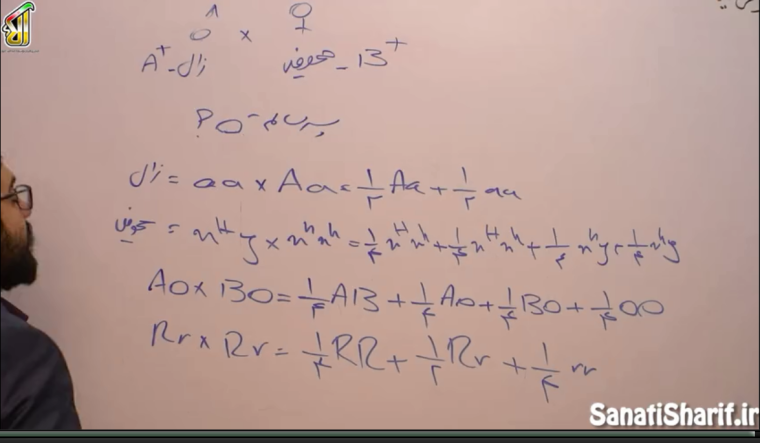 ♂ × ♀
زال - A+   هموفیل - B+
پسر سالم O- ؟
زال = aa × Aa = 1/۲ Aa + 1/۲ aa
= x^H y × x^h x^h = 1/۴ x^H x^h + 1/۴ x^H x^h + 1/۴ x^h y + 1/۴ x^h y
AO × BO = 1/۴ AB + 1/۴ AO + 1/۴ BO + 1/۴ OO
Rr × Rr = 1/۴ RR + 1/۲ Rr + 1/۴ rr
SanatiSharif.ir